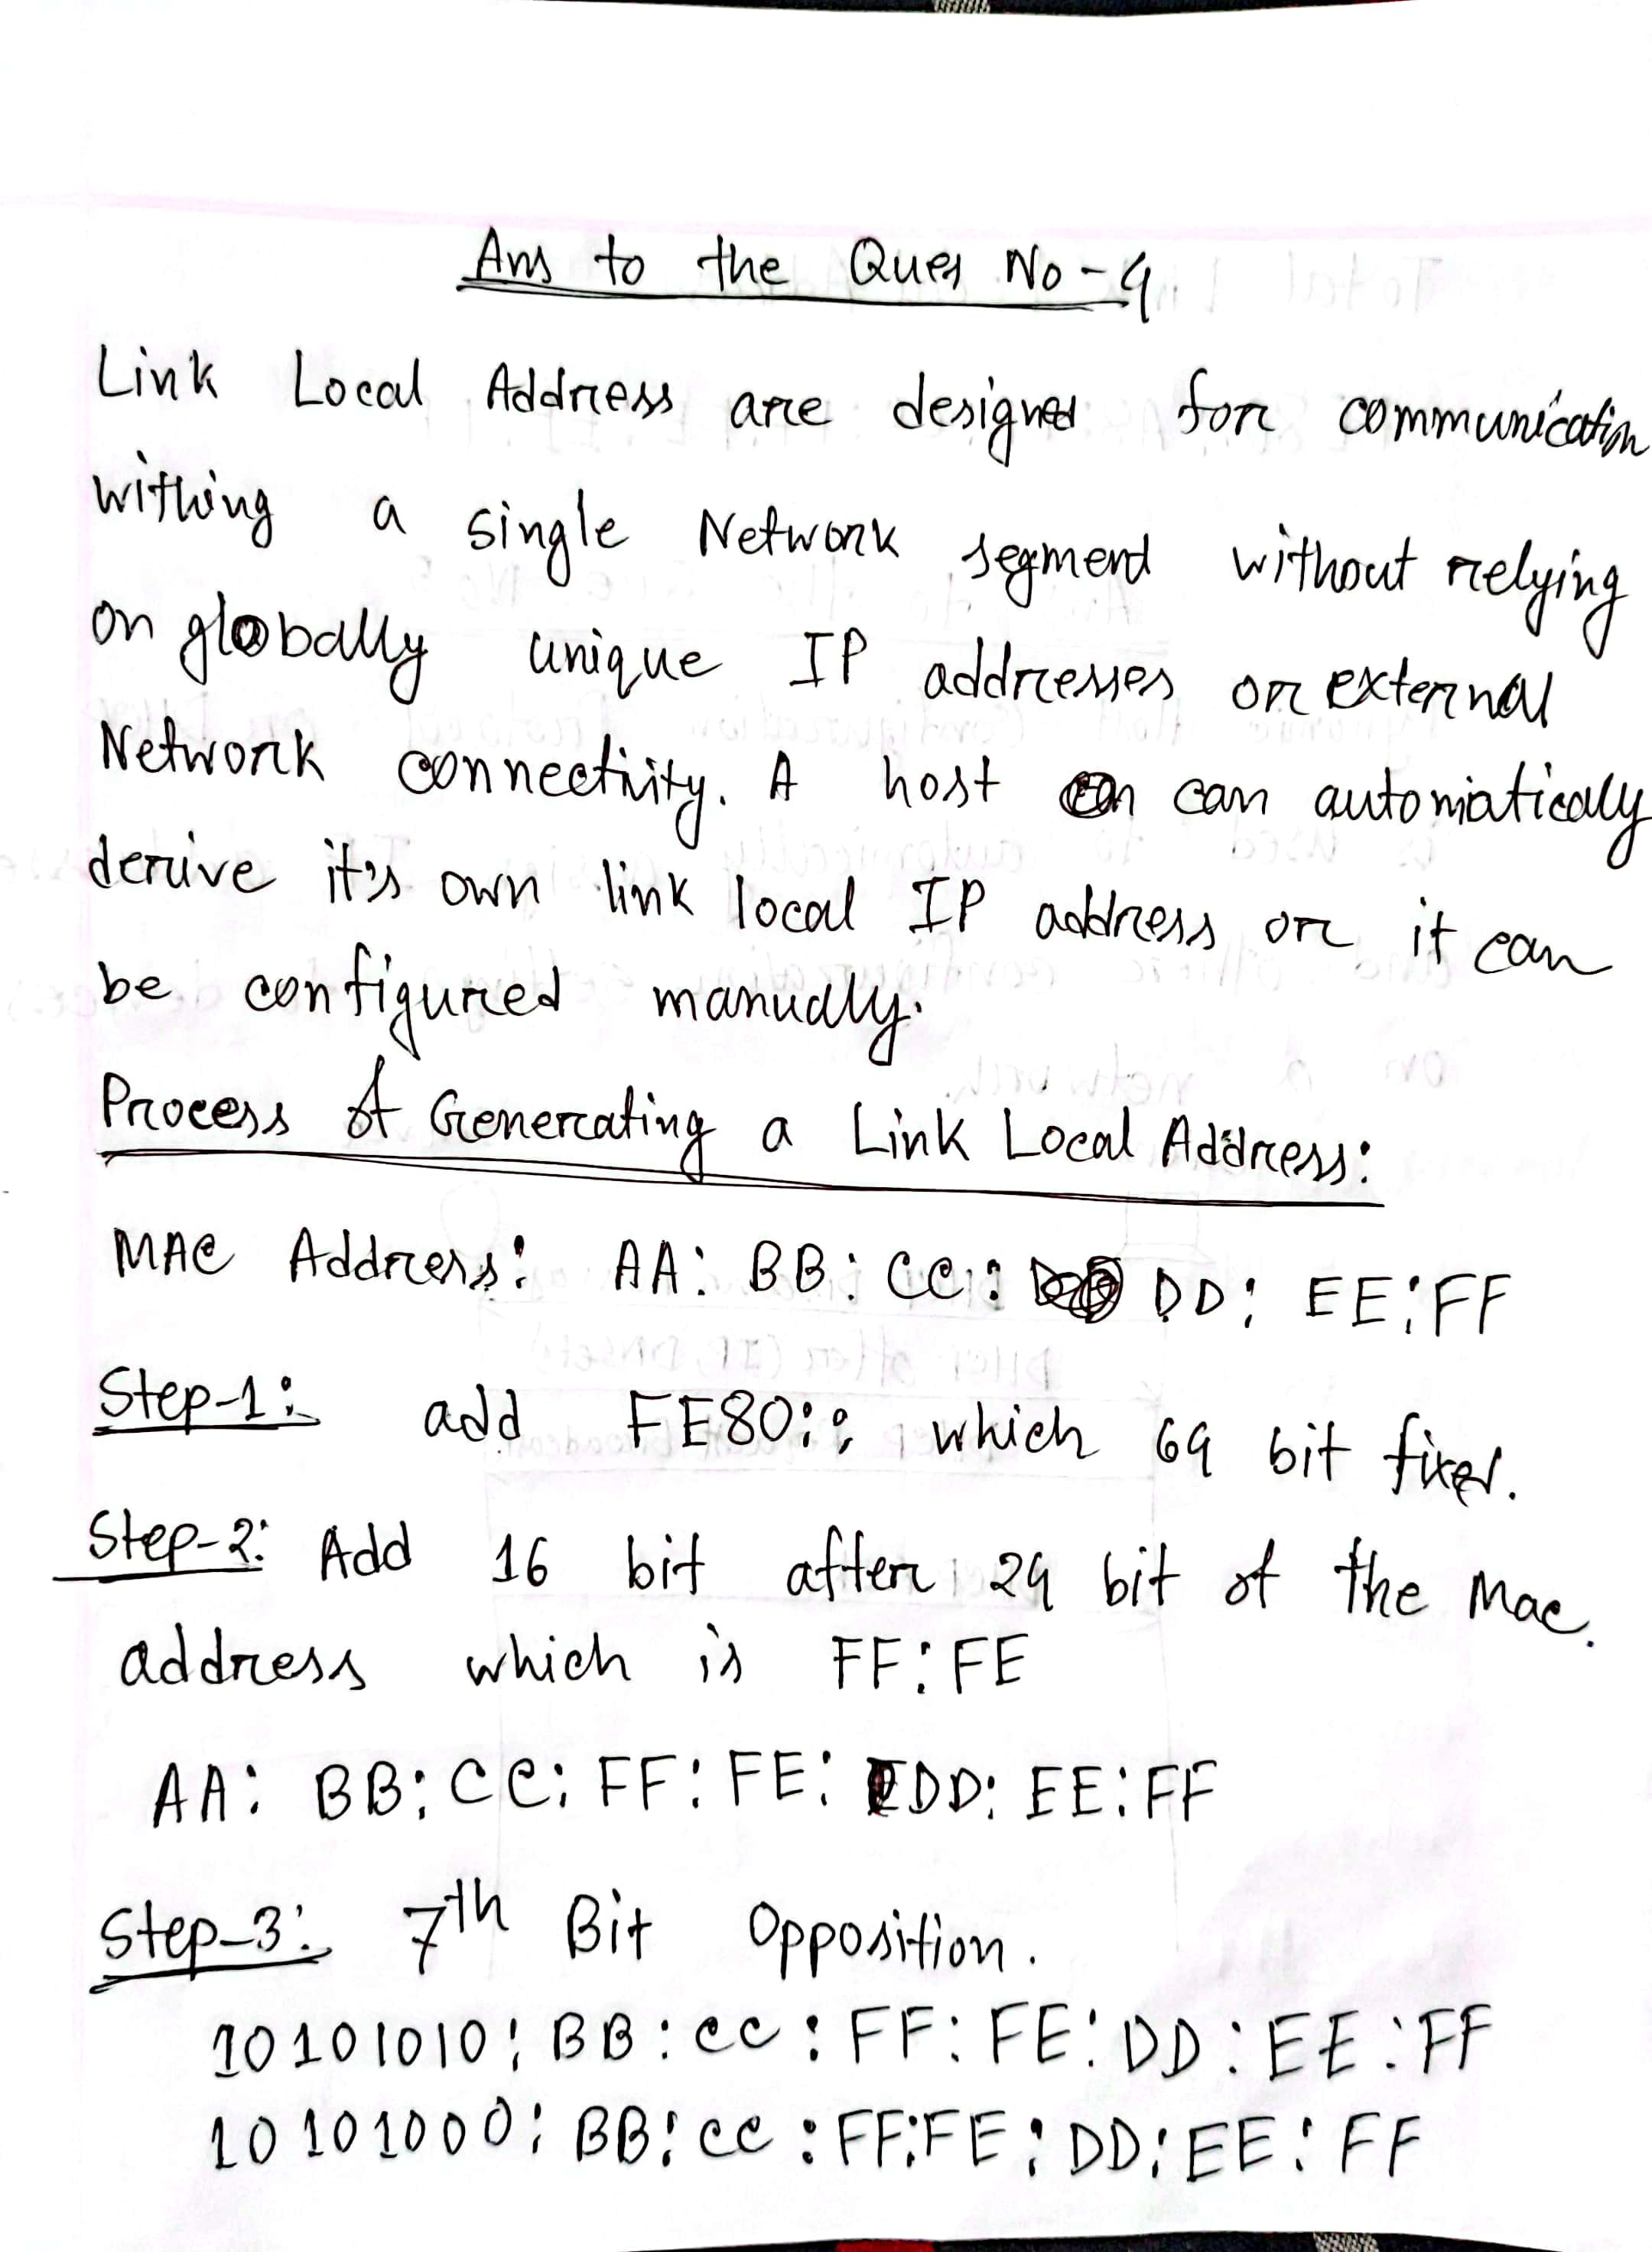 Ans to the Ques No - 4
Link Local Address are designed for communication
withing a single Network segment without relying
on globally unique IP addresses or external
Network connectivity. A host can automaticaly
derive it's own link local IP address or it can
be configured manually.
Process of Generating a Link Local Address:
MAC Address: AA: BB: CC: DD: EE: FF
Step-1: add FE80:: which 64 bit fixed.
Step-2: Add 16 bit after 24 bit of the Mac
address which is FF:FE
AA: BB: CC: FF: FE: DD: EE: FF
Step-3: 7th Bit Opposition.
10101010: BB: CC: FF: FE: DD: EE: FF
10101000: BB: CC: FF:FE: DD: EE: FF